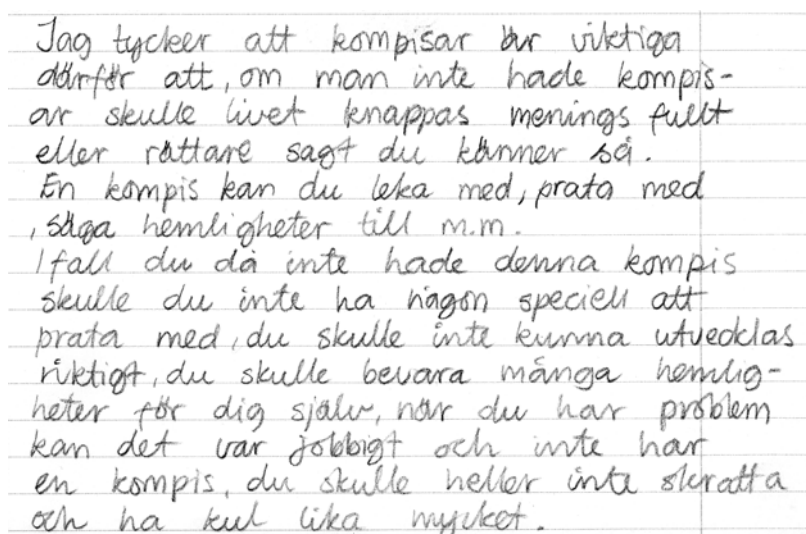 Jag tycker att kompisar är viktiga
därför att, om man inte hade kompis-
ar skulle livet knappas menings fullt
eller rättare sagt du känner så.
En kompis kan du leka med, prata med
, säga hemligheter till m.m.
Ifall du då inte hade denna kompis
skulle du inte ha någon speciell att
prata med, du skulle inte kunna utvecklas
riktigt, du skulle bevara många hemlig-
heter för dig själv, när du har problem
kan det var jobbigt och inte har
en kompis, du skulle heller inte skratta
och ha kul lika mycket.